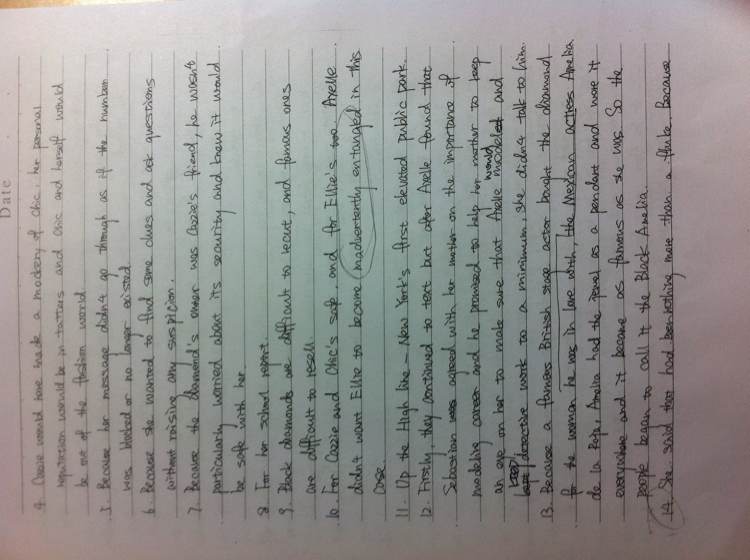 Date
4. Cazzie would have made a mockery of Chic, her personal
reputation would be in tatters and Chic and herself would
be out of the fashion world.
5. Because her message didn't go through as if the number
was blocked or no longer existed.
6. Because she wanted to find some clues and ask questions
without raising any suspicion.
7. Because the diamond's owner was Cazzie's friend, he wasn't
particularly worried about its security and knew it would
be safe with her.
8. For her school report.
9. Black diamonds are difficult to recut, and famous ones
are difficult to resell.
10. For Cazzie and Chic's safe, and for Ellie's too. Axelle
didn't want Ellie to become inadvertently entangled in this
case.
11. Up the High line – New York's first elevated public park.
12. Firstly, they continued to text but after Axelle found that
Sebastian was agreed with her mother on the importance of
modeling career and he promised to help her mother to keep
an eye on her to make sure that Axelle would modeled and
keep detective work to a minimum, she didn't talk to him.
13. Because a famous British stage actor bought the diamond
for the woman he was in love with, the Mexican actress Amelia
de la Paz, Amelia had the jewel as a pendant and wore it
everywhere and it became as famous as she was So the
people began to call it the Black Amelia.
14. She said that had been nothing more than a fluke, Because